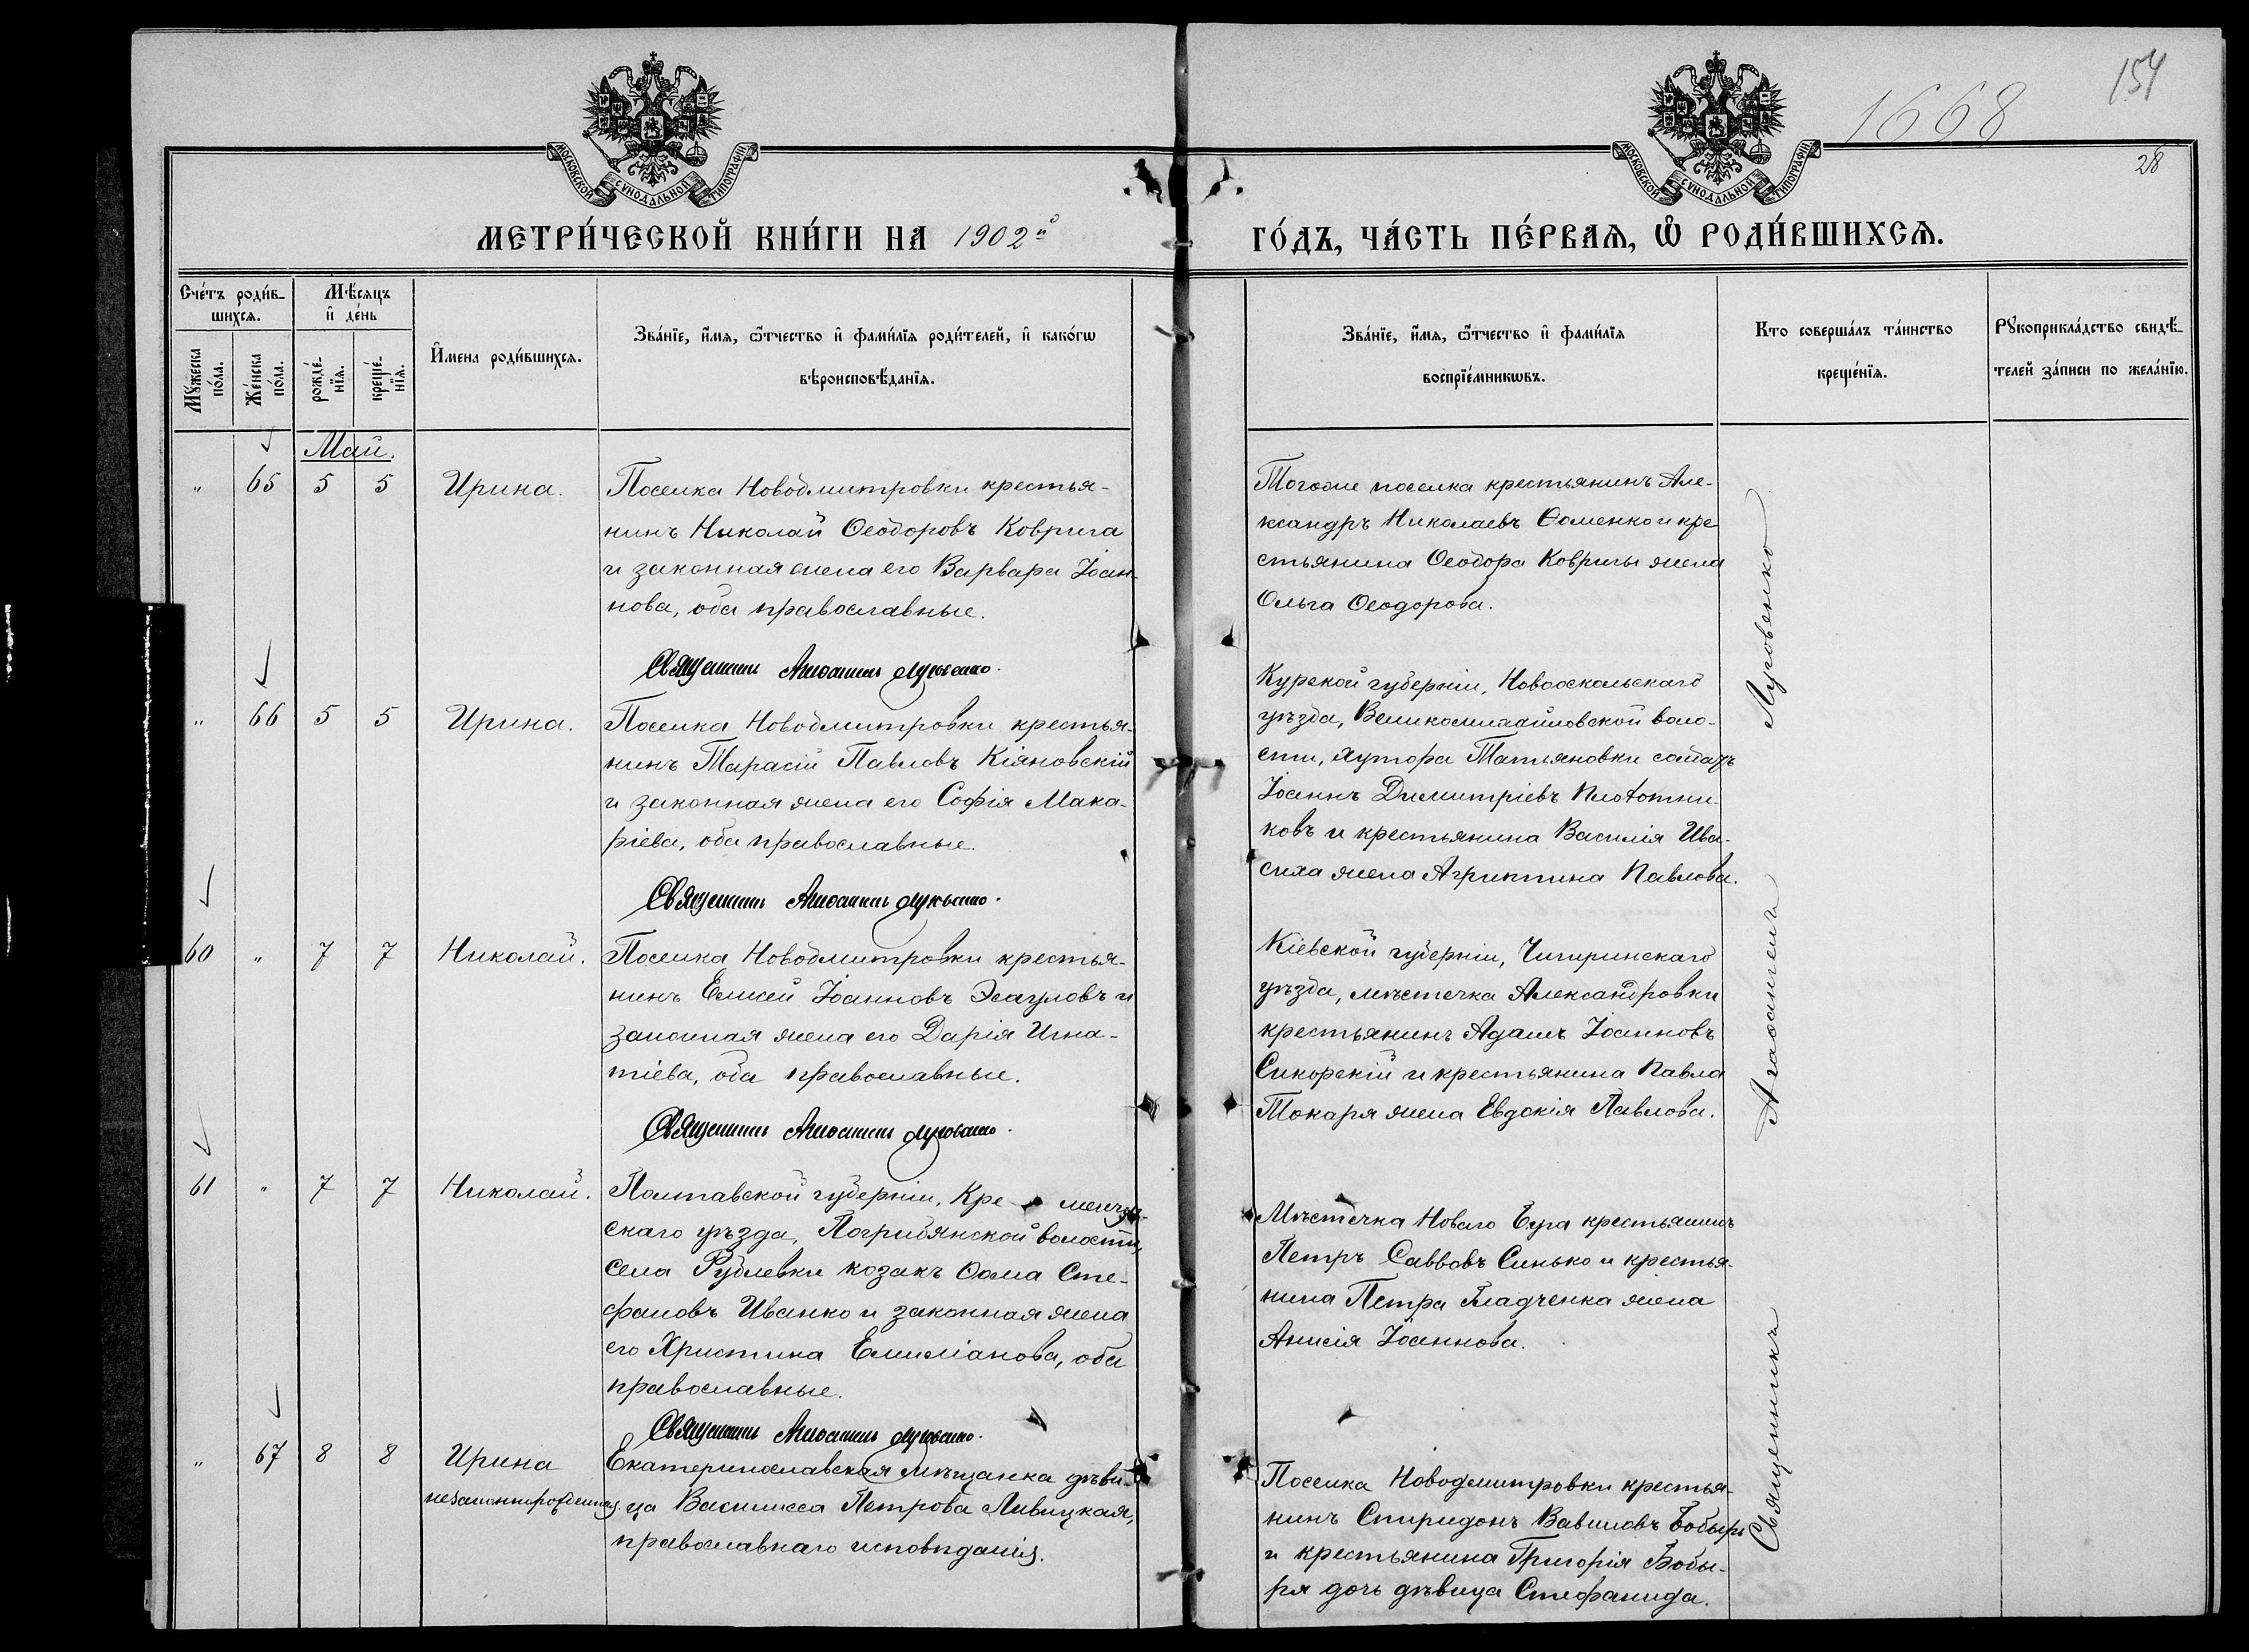 1668
154
28
МОСКОВСКОЙ СѴНОДАЛЬНОЙ ТИПОГРАФІИ
МОСКОВСКОЙ СѴНОДАЛЬНОЙ ТИПОГРАФІИ
МЕТРИ́ЧЕСКОЙ КНИ́ГИ НА 1902й ГО́ДЪ, ЧА́СТЬ ПЕ́РВАѦ, Ѡ҆ РОДИ́ВШИХСѦ.
Сче́тъ роди́в-
шихсѧ.
Мꙋ́жеска по́ла.
Же́нска по́ла.
Мѣ́сѧцъ
и҆ де́нь
рожде́-
нїѧ.
креще́-
нїѧ.
И҆мена роди́вшихсѧ.
Зва́нїе, и҆́мѧ, ѻ҆́тчество и҆ фами́лїѧ роди́телей, и҆ како́гѡ
вѣроисповѣ́данїѧ.
Зва́нїе, и҆́мѧ, ѻ҆́тчество и҆ фами́лїѧ
воспрїе́мникѡвъ.
Кто соверша́лъ та́инство
креще́нїѧ.
Рꙋкоприкла́дство свидѣ́-
телей за́писи по жела́нїю.
Май.
" 65 5 5 Ирина.
Поселка Новодмитровки крестья-
нинъ Николай Ѳеодоровъ Коврига
и законная жена его Варвара Іоан-
нова, оба православные.
Священникъ Агаѳангелъ Луговенко.
Тогоже поселка крестьянинъ Але-
ксандръ Николаевъ Ѳоменко и кре-
стьянина Ѳеодора Ковриги жена
Ольга Ѳеодорова.
" 66 5 5 Ирина.
Поселка Новодмитровки крестья-
нинъ Тарасій Павловъ Кіяновскій
и законная жена его Софія Мака-
ріева, оба православные.
Священникъ Агаѳангелъ Луговенко.
Курской губерніи, Новооскольскаго
уѣзда, Великомихайловской воло-
сти, хутора Татьяновки солдатъ
Іоаннъ Димитріевъ Плотни-
ковъ и крестьянина Василія Ива-
сиха жена Агриппина Павлова.
60 " 7 7 Николай.
Поселка Новодмитровки крестья-
нинъ Елисей Іоанновъ Эсауловъ и
законная жена его Дарія Игна-
тіева, оба православные.
Священникъ Агаѳангелъ Луговенко.
Кіевской губерніи, Чигиринскаго
уѣзда, мѣстечка Александровки
крестьянинъ Адамъ Іоанновъ
Сикорскій и крестьянина Павла
Токаря жена Евдокія Павлова.
61 " 7 7 Николай.
Полтавской губерніи, Кременчуг-
скаго уѣзда, Погребянской волости,
села Рублевки козакъ Ѳома Сте-
фановъ Иванко и законная жена
его Христина Емиліанова, оба
православные.
Священникъ Агаѳангелъ Луговенко.
Мѣстечка Новаго Буга крестьянинъ
Петръ Саввовъ Синько и крестья-
нина Петра Гладченка жена
Анисія Іоаннова.
" 67 8 8 Ирина
незаконнорожденная
Екатеринославская мѣщанка дѣви-
ца Василисса Петрова Ливицкая,
православнаго исповѣданія.
Поселка Новодмитровки крестья-
нинъ Спиридонъ Вавиловъ Бобырь
и крестьянина Григорія Бобы-
ря дочь дѣвица Стефанида.
Священникъ Агаѳангелъ Луговенко